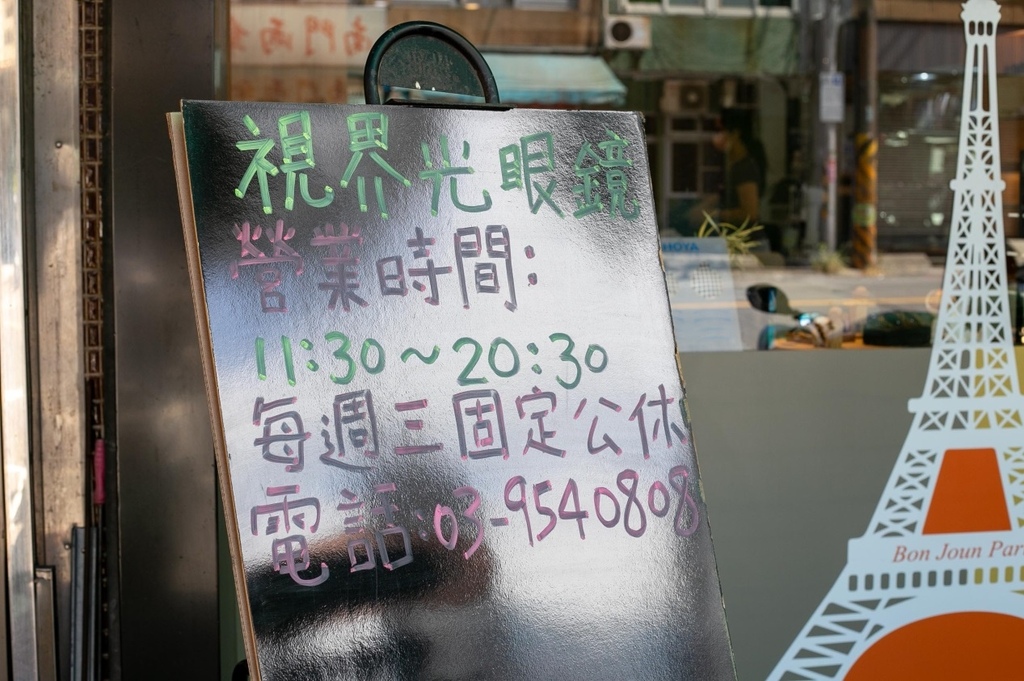 視界光眼鏡
營業時間:
11:30~20:30
每週三固定公休
電話:03-9540808
HOYA
Bon Joun Par